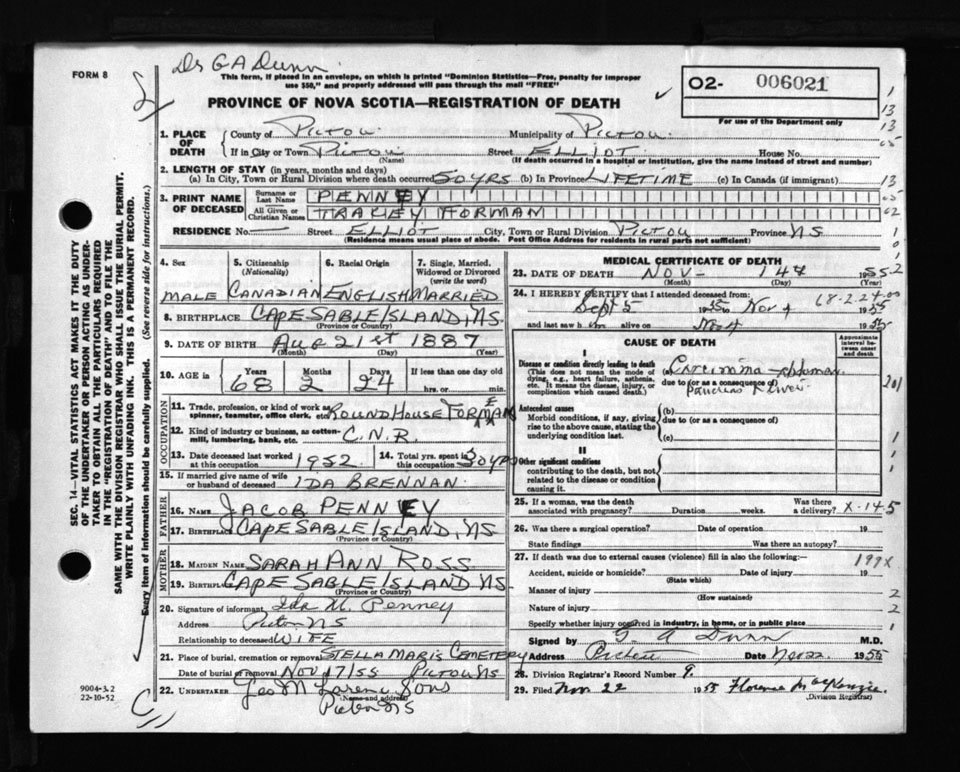 FORM 8
Dr G A Dunn
This form, if placed in an envelope, on which is printed "Dominion Statistics—Free, penalty for improper
use $50," and properly addressed will pass through the mail "FREE"
PROVINCE OF NOVA SCOTIA—REGISTRATION OF DEATH
02- 006021
For use of the Department only
1. PLACE OF DEATH County of Pictou Municipality of Pictou
If in City or Town Pictou Street ELLIOT House No.
(Name) (If death occurred in a hospital or institution, give the name instead of street and number)
2. LENGTH OF STAY (in years, months and days)
(a) In City, Town or Rural Division where death occurred 50 YRS (b) In Province LIFETIME (c) In Canada (if immigrant)
3. PRINT NAME OF DECEASED Surname or Last Name PENNEY
All Given or Christian Names TRACEY FORMAN
RESIDENCE No. — Street ELLIOT City, Town or Rural Division PICTOU Province NS
(Residence means usual place of abode. Post Office Address for residents in rural parts not sufficient)
4. Sex MALE
5. Citizenship (Nationality) CANADIAN
6. Racial Origin ENGLISH
7. Single, Married, Widowed or Divorced (write the word) MARRIED
8. BIRTHPLACE CAPE SABLE ISLAND, NS.
(Province or Country)
9. DATE OF BIRTH Aug 21st 1887
(Month) (Day) (Year)
10. AGE in Years 68 Months 2 Days 24 If less than one day old
hrs. or min.
OCCUPATION
11. Trade, profession, or kind of work as spinner, teamster, office clerk, etc. ROUND HOUSE FORMAN
12. Kind of industry or business, as cotton-mill, lumbering, bank, etc. C.N.R.
13. Date deceased last worked at this occupation 1952
14. Total yrs. spent in this occupation 30 yrs
15. If married give name of wife or husband of deceased IDA BRENNAN
FATHER
16. Name JACOB PENNEY
17. Birthplace CAPE SABLE ISLAND, NS
(Province or Country)
MOTHER
18. Maiden Name SARAH ANN ROSS
19. Birthplace CAPE SABLE ISLAND NS.
(Province or Country)
20. Signature of informant Ida M. Penney
Address Pictou NS
Relationship to deceased WIFE
21. Place of burial, cremation or removal STELLA MARIS CEMETERY
Date of burial or removal NOV 17/55 PICTOU NS
22. UNDERTAKER Geo M Sons
(Name and address)
Pictou NS
MEDICAL CERTIFICATE OF DEATH
23. DATE OF DEATH NOV- 14th 1955
(Month) (Day) (Year)
24. I HEREBY CERTIFY that I attended deceased from:
Sept 5 1955 to Nov 9 1955
68-2-24-00
and last saw him alive on Nov 1955
CAUSE OF DEATH
Approximate interval between onset and death
I
Disease or condition directly leading to death
(This does not mean the mode of dying, e.g., heart failure, asthenia, etc. It means the disease, injury, or complication which caused death.)
(a) Carcinoma Abdomen
due to (or as a consequence of)
Pancreas & Liver
Antecedent causes
Morbid conditions, if any, giving rise to the above cause, stating the underlying condition last.
(b)
due to (or as a consequence of)
(c)
II
Other significant conditions
contributing to the death, but not related to the disease or condition causing it.
25. If a woman, was the death associated with pregnancy? Duration weeks. Was there a delivery?
X-14-5
26. Was there a surgical operation? Date of operation 19
State findings Was there an autopsy?
27. If death was due to external causes (violence) fill in also the following:—
199X
Accident, suicide or homicide? Date of injury 19
(State which)
Manner of injury
(How sustained)
Nature of injury
Specify whether injury occurred in industry, in home, or in public place
Signed by G. A Dunn M.D.
Address Pictou Date Nov 22 1955
28. Division Registrar's Record Number 9.
29. Filed Nov. 22 1955 Florence MacKenzie
(Division Registrar)
SEC. 14—VITAL STATISTICS ACT MAKES IT THE DUTY
OF THE UNDERTAKER OR PERSON ACTING AS UNDER-
TAKER TO OBTAIN ALL THE PARTICULARS REQUIRED
IN THE "REGISTRATION OF DEATH" AND TO FILE THE
SAME WITH THE DIVISION REGISTRAR WHO SHALL ISSUE THE BURIAL PERMIT.
WRITE PLAINLY WITH UNFADING INK. THIS IS A PERMANENT RECORD.
Every item of information should be carefully supplied. (See reverse side for instructions.)
9004-3.2
22-10-52